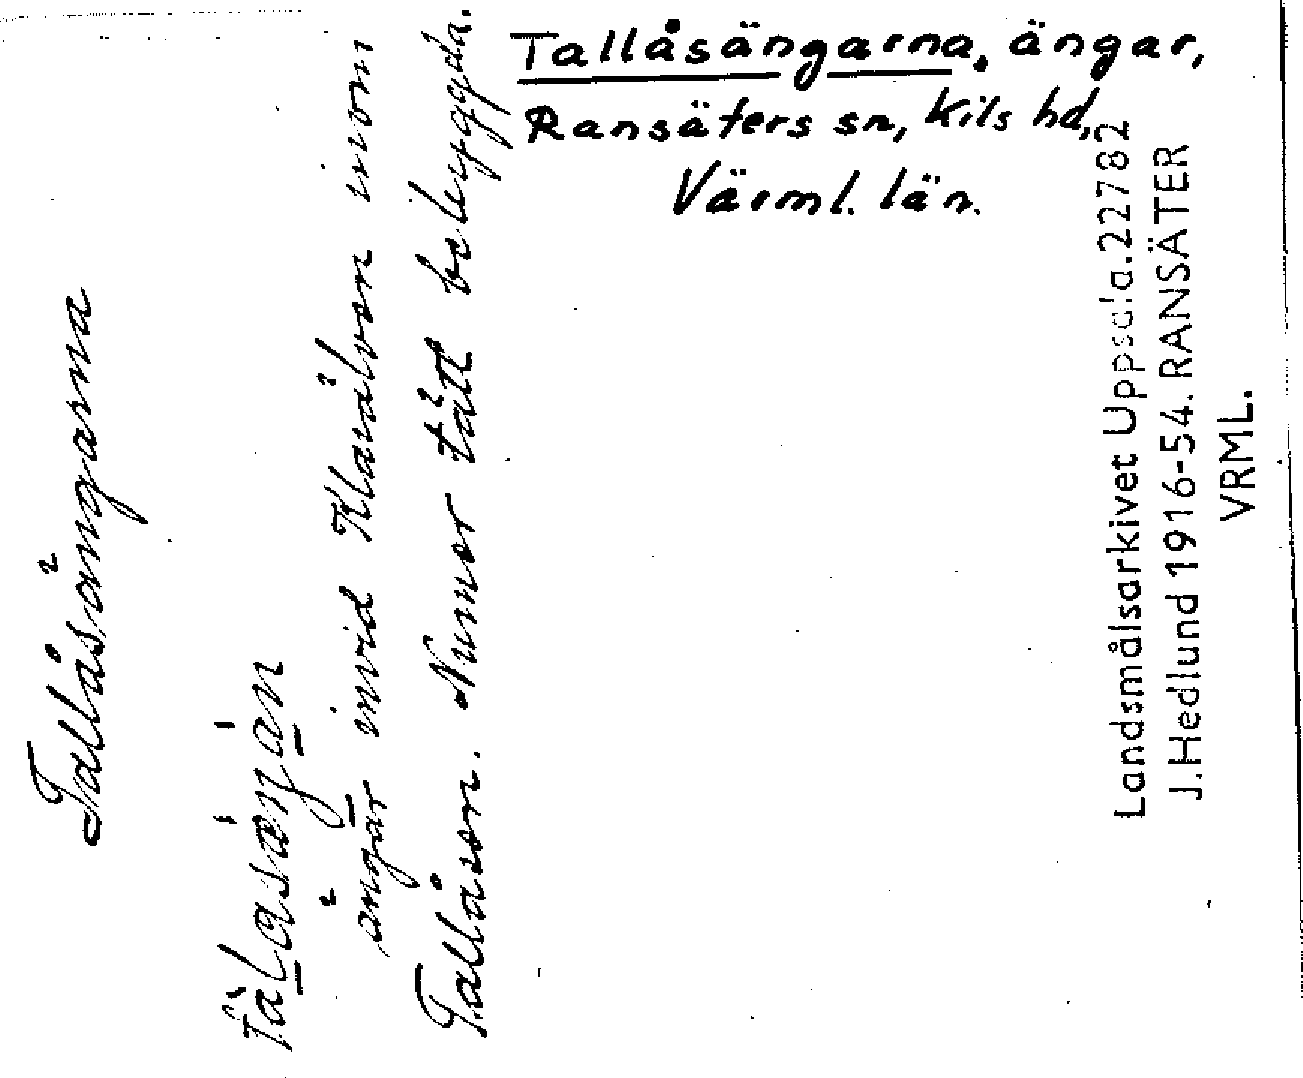 Tallåsängarna, ängar,
Ransäters sn, Kils hd,
Värml. län.
Tallåsängarna
ängar invid Klarälven inom
Tallåsen. Numer tätt bebyggda.
Landsmålsarkivet Uppsala.22782
J.Hedlund 1916-54. RANSÄTER
VRML.